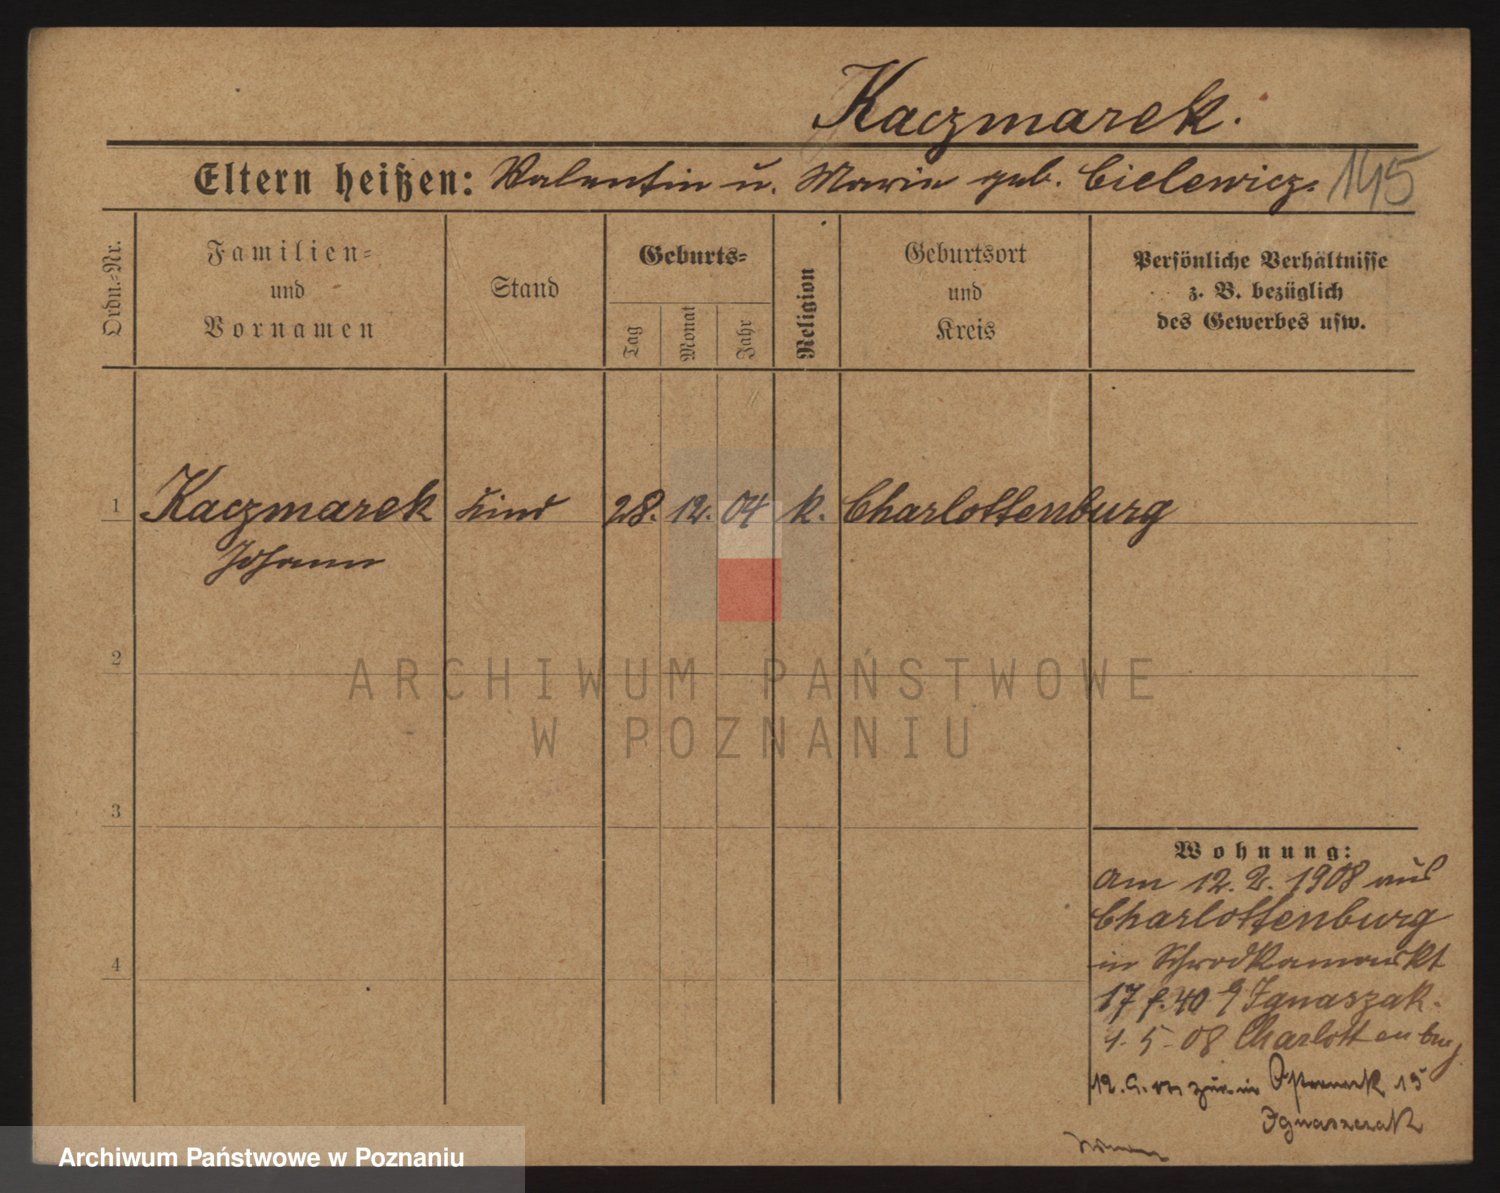 Kaczmarek.
Eltern heißen: Valentin u. Marie geb. Cielewicz. 145
Ordn.-Nr.
Familien-
und
Vornamen
Stand
Geburts-
Tag
Monat
Jahr
Religion
Geburtsort
und
Kreis
Persönliche Verhältnisse
z. B. bezüglich
des Gewerbes usw.
1 Kaczmarek Kind 28. 12. 04 k. Charlottenburg
Johann
2
ARCHIWUM PAŃSTWOWE
W POZNANIU
3
Wohnung:
am 12. 2. 1908 aus
Charlottenburg
in Schrodkamarkt
17 40 Ignaszak.
4
4. 5. 08 Charlottenburg
15
Ignaszczak
Archiwum Państwowe w Poznaniu